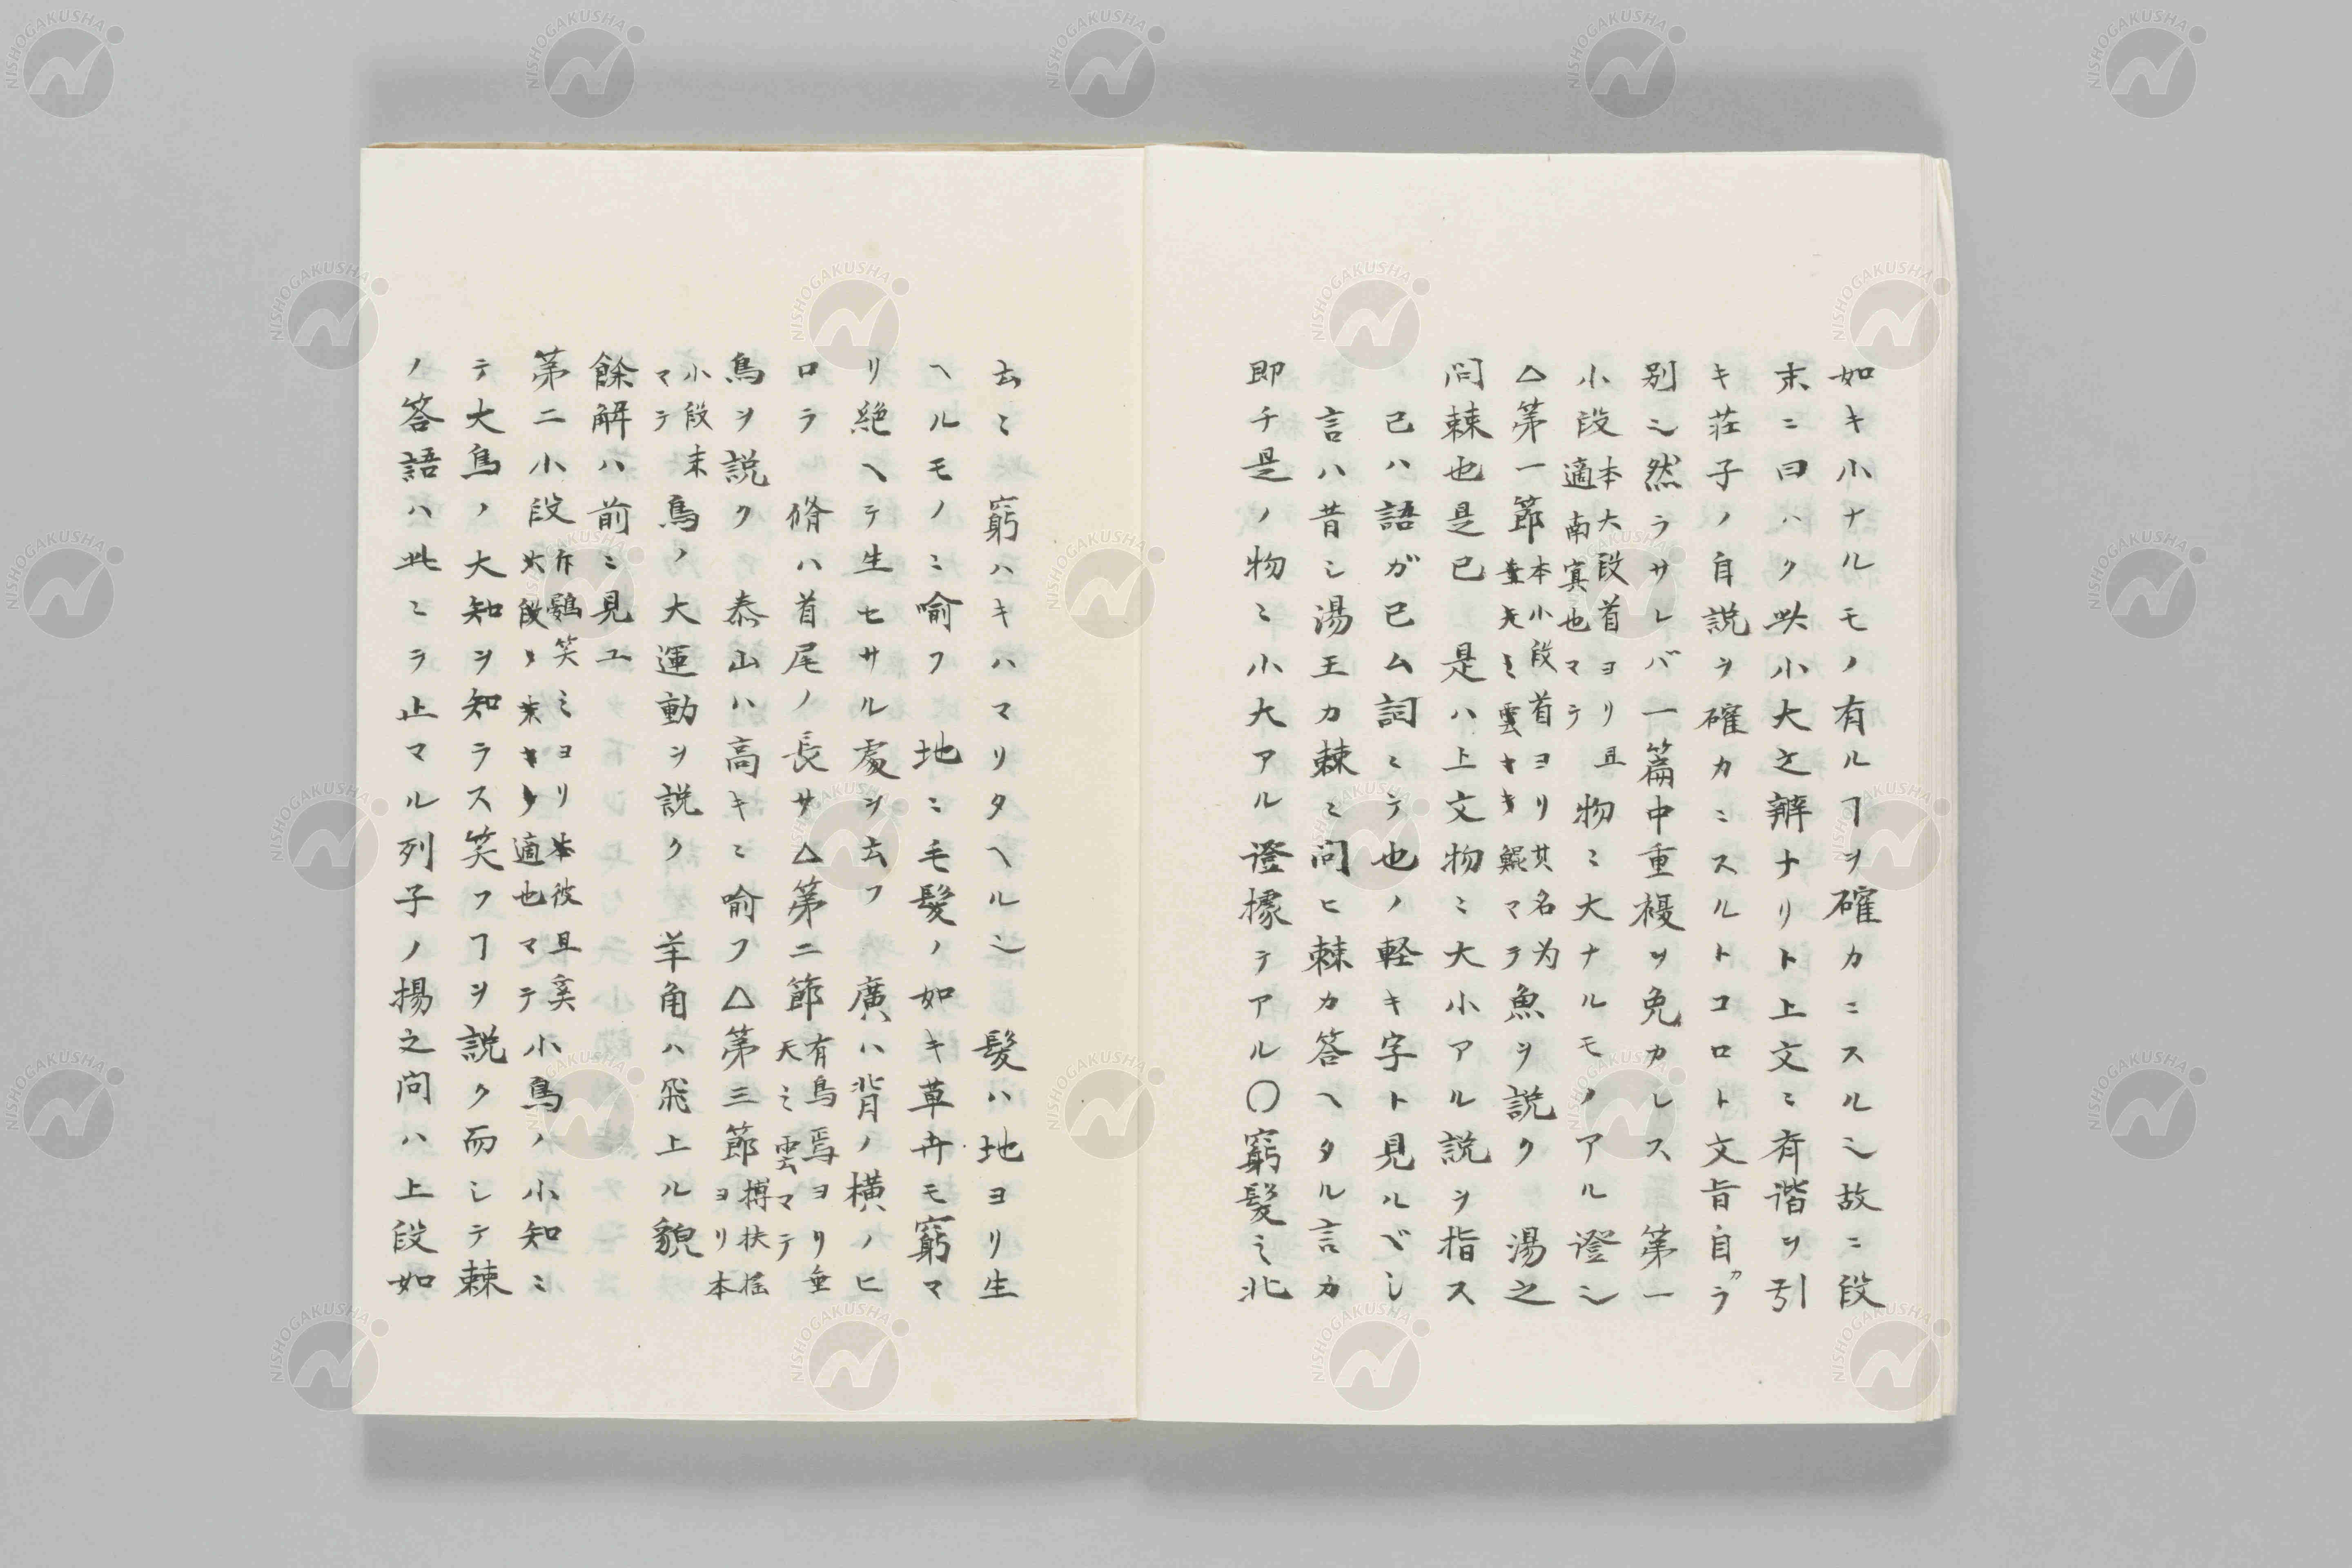 如キ小ナルモノ有ルヿヲ確カニスル〆故ニ段
末ニ曰ハク此小大之辨ナリト上文ニ斉諧ヲ引
キ荘子ノ自説ヲ確カニスルトコロト文旨自カラ
別〆然ラサレバ一篇中重複ヲ免カレス 第一
小段本大段首ヨリ適南冥也マテ且物ニ大ナルモノアル證〆
△第一節本小段首ヨリ其名为鯤マテ魚ヲ説ク 湯之
問棘也是已 是ハ上文物ニ大小アル説ヲ指ス
已ハ語ガ已ム詞ニテ也ノ軽キ字ト見ルベシ
言ハ昔シ湯王カ棘ニ問ヒ棘カ答ヘタル言カ
即チ是ノ物ニ小大アル證據テアル〇窮髮之北
云ミ 窮ハキハマリタヘル〆 髮ハ地ヨリ生
ヘルモノニ喩フ 地ニ毛髮ノ如キ草卉モ窮マ
リ絶ヘテ生セサル處ヲ云フ 廣ハ背ノ横ノヒ
ロラ 脩ハ首尾ノ長サ△第二節有鳥焉ヨリ垂天之雲マテ
鳥ヲ説ク 泰山ハ高キニ喩フ△第三節搏扶揺ヨリ本
小段末マテ鳥ノ大運動ヲ説ク 羊角ハ飛上ル貌
餘解ハ前ニ見ユ
第二小段斥鷃笑ミヨリ彼且奚適也マテ小鳥ノ小知ニ
テ大鳥ノ大知ヲ知ラス笑フヿヲ説ク而シテ棘
ノ答語ハ此ニラ止マル列子ノ揚之問ハ上段如
NISHOGAKUSHA